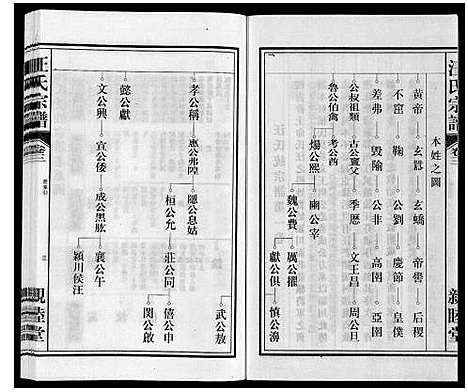 汪氏宗譜
卷三
親睦堂
本姓之圖
黃帝 玄囂 玄蟜 帝嚳 后稷
不窋 鞠 公劉 慶節 皇僕
差弗 毀隃 公非 高圉 亞圉
公叔祖類 古公亶父 季歷 文王昌 周公旦
魯公伯禽 考公酋
煬公熙 幽公宰
魏公費 厲公擢
獻公俱 慎公濞
武公敖
孝公稱 惠公弗隍 隱公息姑
桓公允 莊公同 僖公申
閔公啟
懿公獻
文公興 宣公倭 成公黑肱 襄公午
潁川侯汪
汪氏宗譜
卷三
三
親睦堂